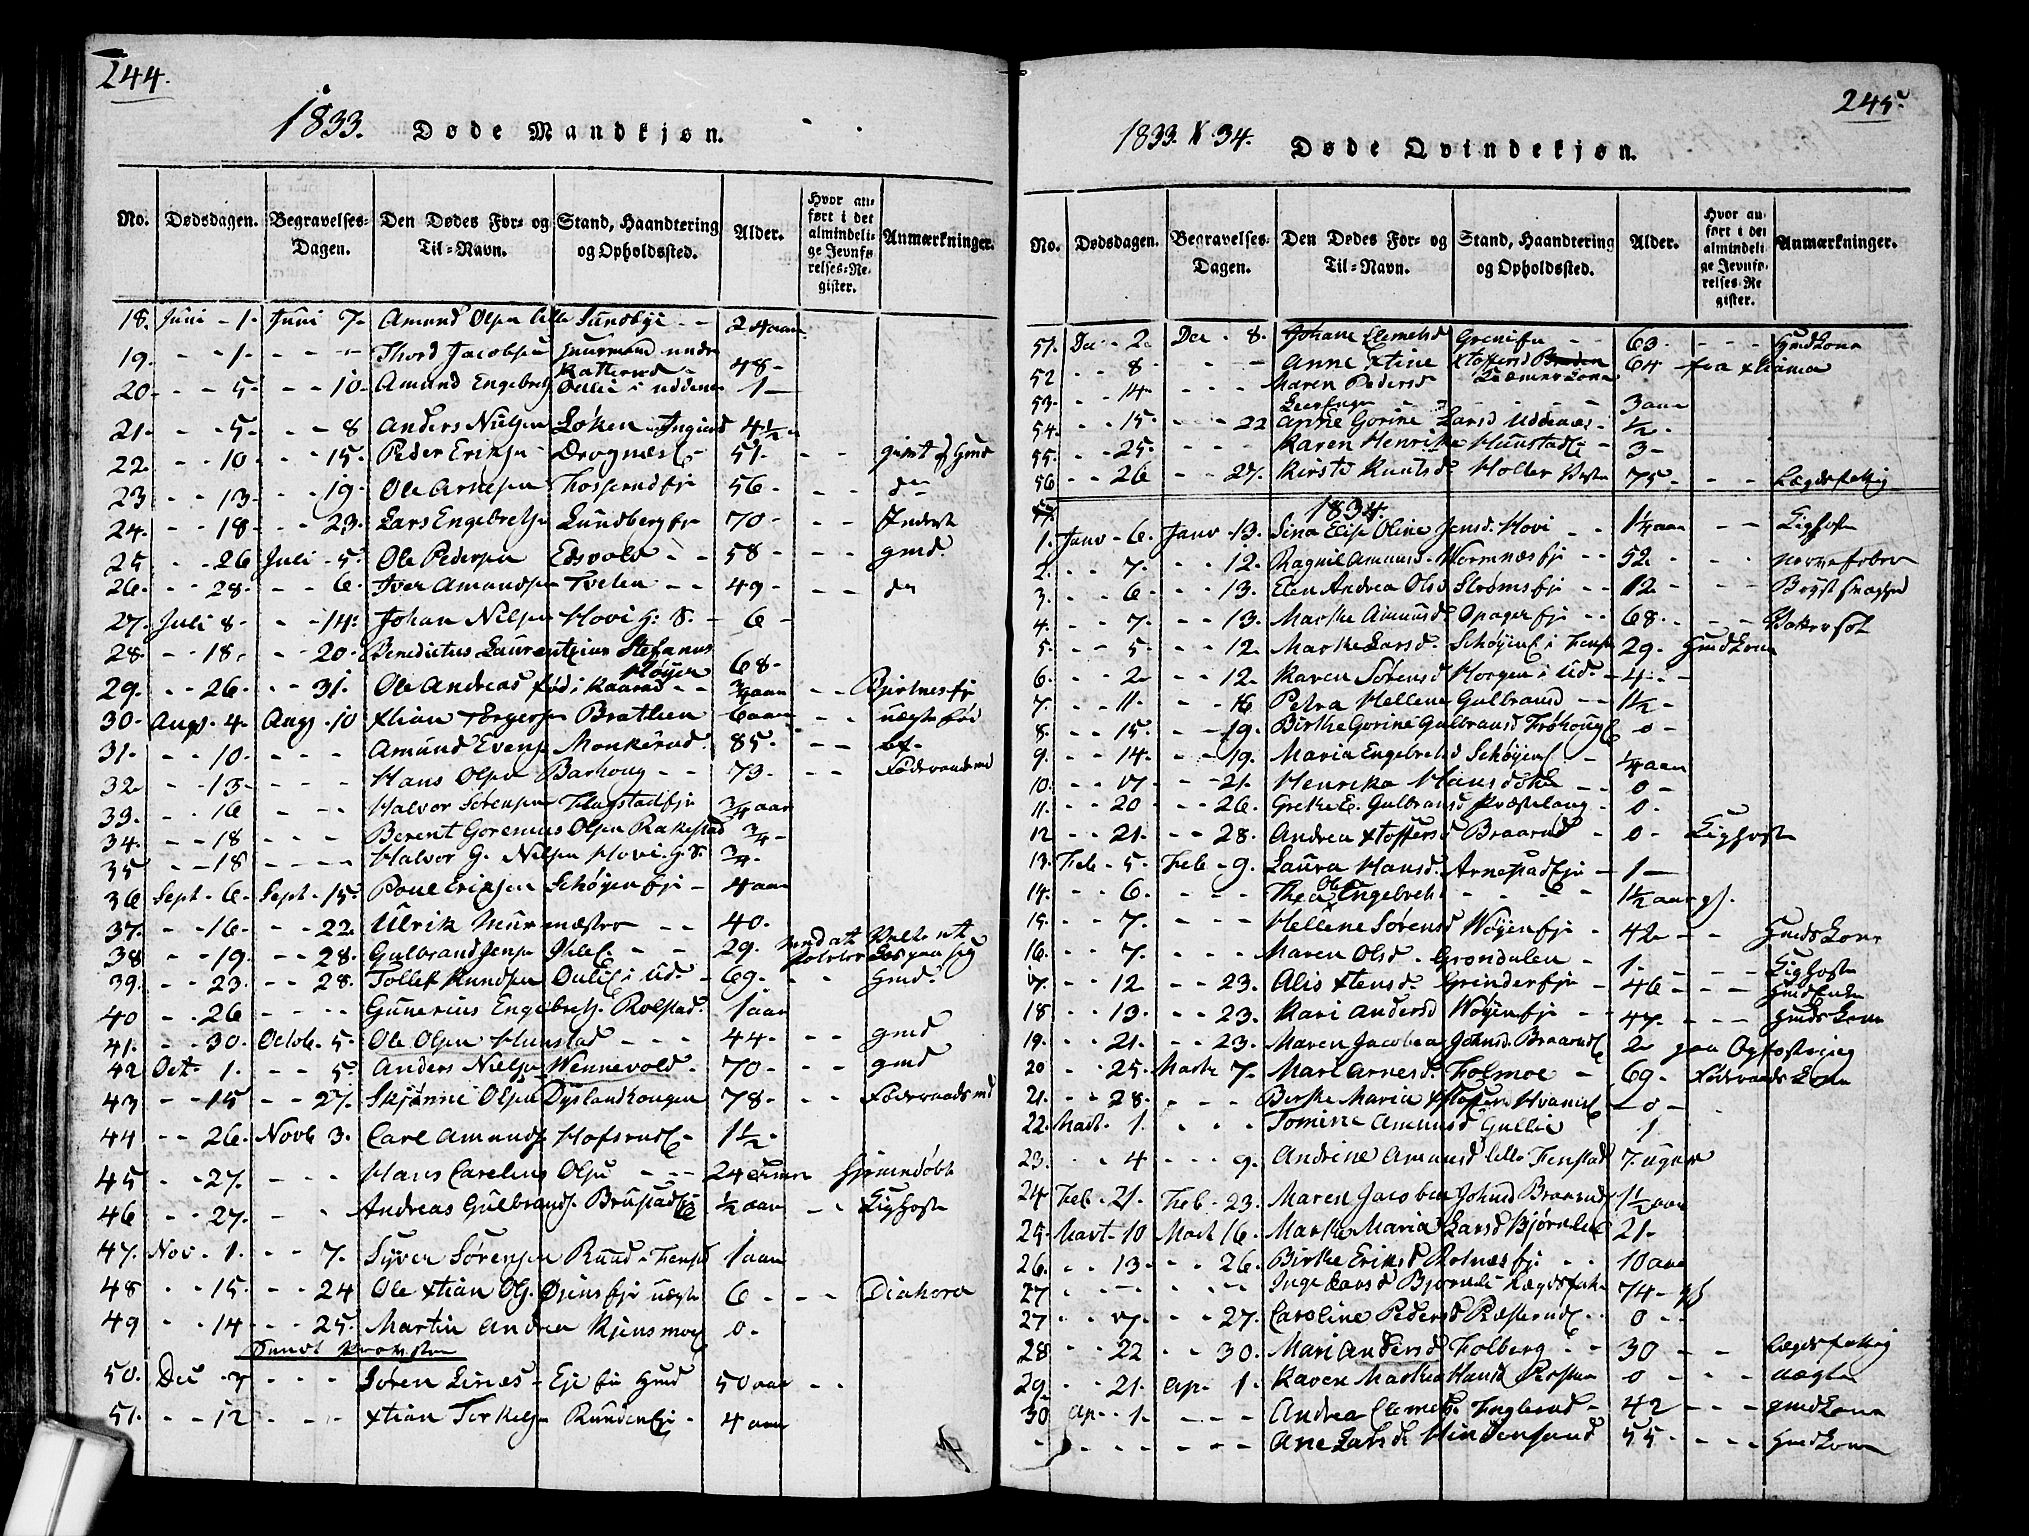 244.
1833. Døde Mandkjøn.
No. Dødsdagen. Begravelses-Dagen. Den Dødes For- og Til-Navn. Stand, Haandtering og Opholdssted. Alder. Hvor anført i det almindelige Jevnførelses-Register. Anmærkninger.
18. Juni - 1. Juni 7. Amund Olsen lille Sundbye - - 24 aar
19. - - 1. - - - Thord Jacobsen 48 -
20. - - 5. - - 10. Amund Engebrets Oulie i uddenes 1 -
21. - - 5. - - 8 Anders Nielsen Løken 4½ -
22. - - 10 - - 15. Peder Eriksen Drognæs 51. - - gmd
23 - - 13. - - 19. Ole Arnesen 56 - - - do
24. - - 18. - - 23. Lars Engebretsen Lundberg 70 - - - Inderst
25 - - 26 Juli - 5. Ole Pedersen Edsvold - - 58 - - - gmd.
26. - - 28. - - 6. Iver Amundsen Tveten - - 49 - - - do
27. Juli 8 - - - 14. Johan Nielsen Hovi g: S. - 6 -
28. - - 18. - - 20. Benedictus Laurentzius Stefanus Høyer 68.
29. - - 26. - - 31. Ole Andreas fød i Kaarud - - ¾ aar - - Bjertnes
30. Aug. 4. Aug 10 Xtian Torgersen Brathen 6 aar - - uægte fød
31. - - 10. - - - Amund Evens Monkerud. 85. - -
32. - - 13. - - - Hans Olsen Barhoug - - 73. - - Føderaadsmd
33. - - 16 - - - Halvor Sørensen Flagstad 3/4 aar
34. - - 18 - - - Berent Goremus Olsen Rakestad 3/4 -
35 - - 18. - - - Halvor G. Nilsen Hovi. g. S. 3/4.
36 Sept. 6. Sept. 15. Poul Eriksen Schøyen - 4 aar
37. - - 16. - - 22. Ulrik Muurmester - - 40.
38 - - 19. - - 28. Gulbrand Jensen - - 29.
39. - - 23. - - 28. Tollef Knudsen Oulie i Ud. - 69. - - Gmd.
40 - - 26 - - - Gunerius Engebrets. Rolstad. 1 aar
41. - - 30. Octob. 5. Ole Olsen Hunstad - - - 44. - - gmd
42 Oct. 1. - - 5. Anders Nielsen Wennevold. 70 - - - gmd
43 - - 15 - - 27. Skjønni Olsen Dyslandhougen 78 - - - Føderaadsmd
44 - - 26. Novb. 3. Carl Amunds Hofsrud - 1½ -
45 - - 27. - - - Hans Carelius Olsen - - - 24 Hjemmedøbt
46 - - 27. - - Andreas Gulbrands. Brustad ½ aar - - Kighoste
47. Nov. 1. - - 7. Syver Sørensen Ruud i Fenstad 1 aar
48 - - 15. - - 24 Ole Xtian Ols. uægte 6 - - - Diahora
49 - - 14 - - 25. Martin Andrea Kjensmoe 0 -
50. Dec. - - - Søren Lines - gmd 50 aar - -
51. - - 12 - - - Xtian Torkels. Runden 4 aar
245
1833. & 34. Døde Qvindekjøn.
No. Dødsdagen. Begravelses-Dagen. Den Dødes For- og Til-Navn. Stand, Haandtering og Opholdssted. Alder. Hvor anført i det almindelige Jevnførelses-Register. Anmærkninger.
51. Dec - 2. Dec - 8. Johane Clemetsd Grenifse - - 63 - - - Gmdkone
52 - - 8 - - - Anne Xtine Xtoffersd 64 - fra Xtiania
53. - - 14 - - - Maren Pedersd - - - 3 aar
54. - - 15. - - 22 Anne Gorine Larsd Uddenæs - ½ -
55. - - 25. - - - Karen Henrike Hunstad - 3 -
56 - - 26 - - 27. Kirsti Knutsd Holter 75 - - - Lægdsfattig
1834.
1. Janv - 6. Janv - 13. Sina Elise Oline Jensd. Hovi - 1/4 aar - - Kighoste
2. - - 7. - - 12. Ragnil Amunds. Wormnæs - 52 - - - Nervefeber
3. - - 6 - - 13. Elen Andrea Olsd Strøms - - 12 - - - Brystsvaghed
4. - - 7. - - 13. Marthe Amunsd Opager - - 68 - - - Vattersot
5. - - 5. - - 12. Marthe Larsd. Schøyen i Fenst 29. Gmdkone
6. - - 2 - - 12. Karen Sørensd Horgen i Ud. - 4 - -
7. - - 11. - - 16 Petra Hellene Gulbrand - - 1½ -
8. - - 15. - - 19. Birthe Gorine Gulbransd Frøhoug 0 -
9. - - 14. - - 19. Maria Engebretsd Schøyen - 1/4 aar
10. - - 17. - - 21. Henrika Hansd - - 0 -
11. - - 20 - - 26. Grethe E. Gulbransd Præstelang - 0.
12 - - 21. - - 28. Andrea Xtoffersd Braarud - 0 - Kighoste
13. Feb - 5. Feb - 9. Laura Hansd. Arnestad - 1 -
14. - - 6. - - - Thea Ol Engebretsd - - - 1½ aar
15. - - 7. - - - Hellene Sørensd Wøyen - 42 - - - Gmdskone
16. - - 7. - - - Maren Olsd - Grøndalen - 1. - - - Kighoste
17. - - 12 - - 23. Alis Xtensd. Grinder - 46 - - - GmdEnke
18 - - 13. - - 23. Kari Andersd Wøyen - - 47. - - - Gmdskone
19. - - 21. - - 23. Maren Jacobea Johnsd. Braarud 2
20 - - 25. Marts 7. Mari Arnesd. Holmoe - 69. - Føderaadskone
21. - - 28. - - - Birthe Maria Xtoffers - 0 -
22. Mart. 1. - - - Tomine Amunsd Gullie 1
23. - - 4 - - - 9. Andrine Amunsd lille Fenstad 7. uger
24 Feb. 21. Feb. 23. Maren Jacobea Johnsd Braarud 1½ aar
25. Mart - 10 Mart 16. Marthe Maria Larsd Bjørnelie 21 -
26. - - 13. - - 26. Birthe Eriksd Rolnæs - - 10 aar
27 - - - - - - Inge Larsd Bjørneli Lægdsfattig 74 -
27 - - 17. - - 27. Caroline Pedersd Præsterud - - 0 - -
28 - - 22 - - 30. Mari Andersd Holberg - - 30 - - Lægdsfattig
29. - - 21. Ap. - 1. Karen Marthea Hansd 0 - - - uægte
30 Ap. - 1. - - - Andrea Clemets. Fuglerud - 42 - - - gmdkone
- - - - - - - Ane Larsd Hindensand 55 - - - Gmdkone